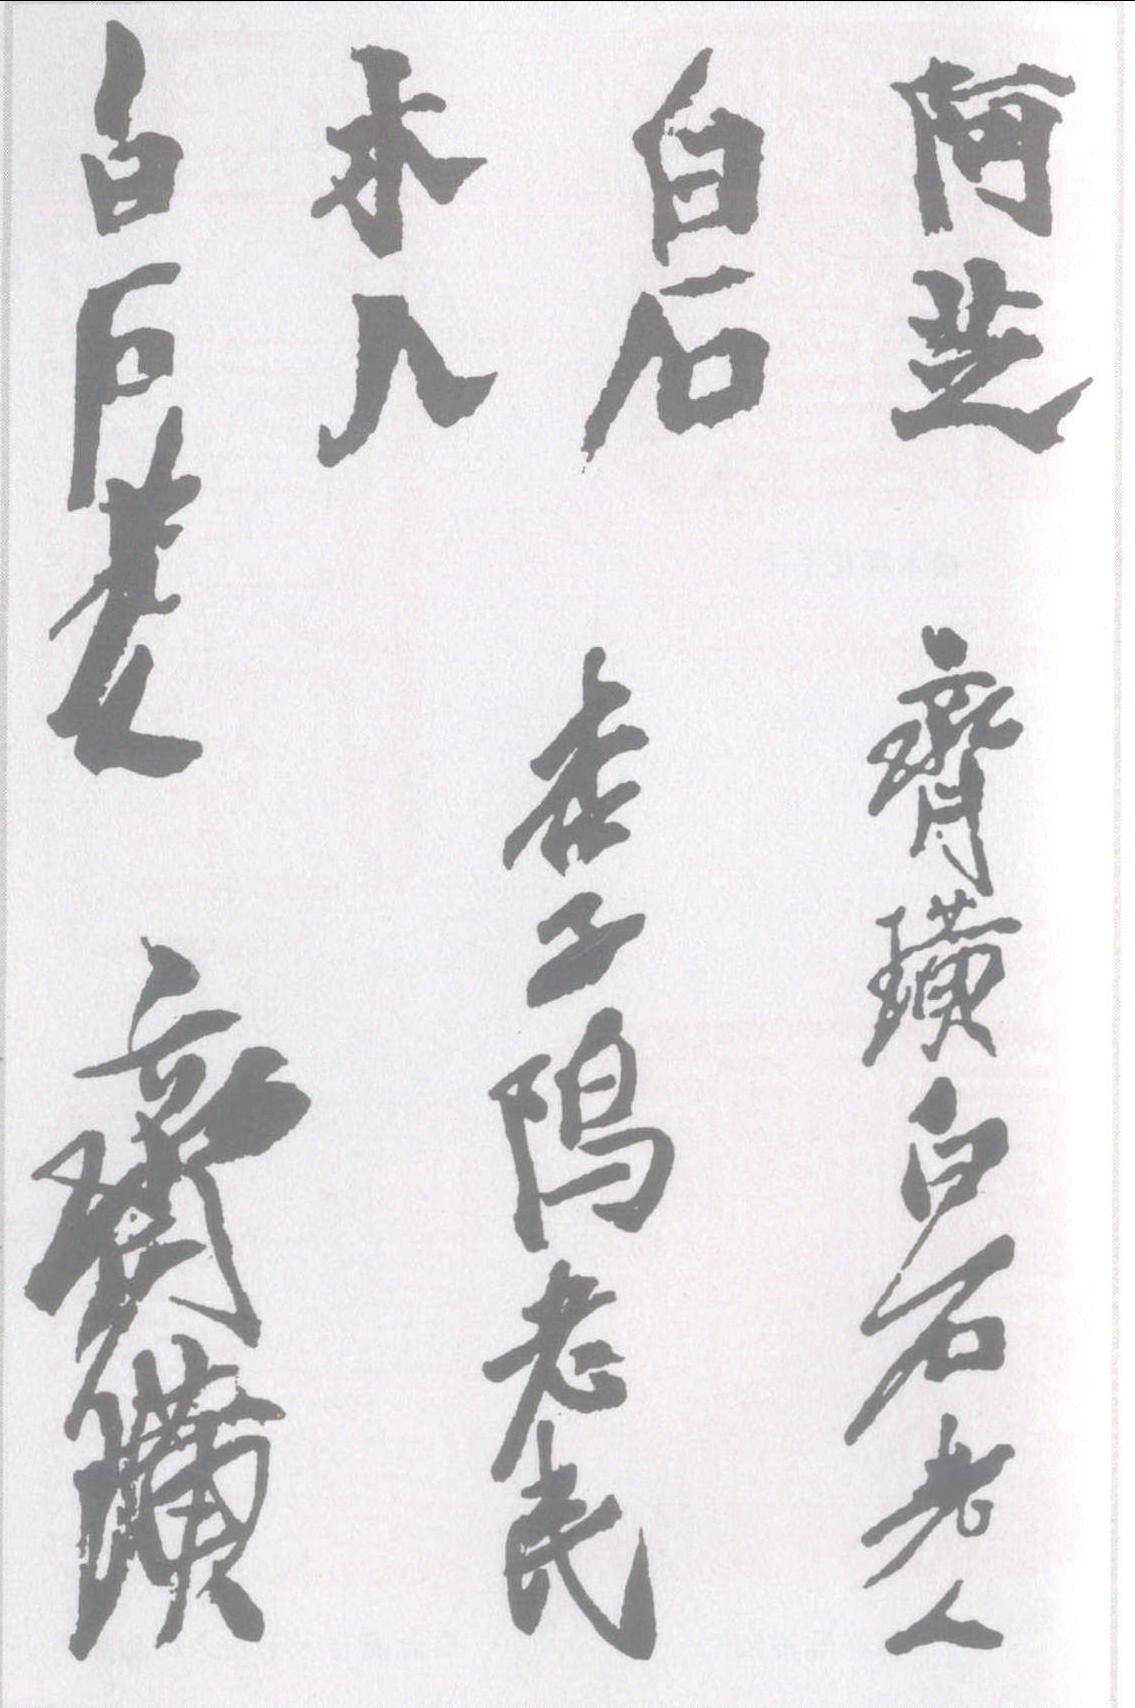 阿芝
白石
木人
白石老人
齊璜白石老人
杏子隖老民
齊璜